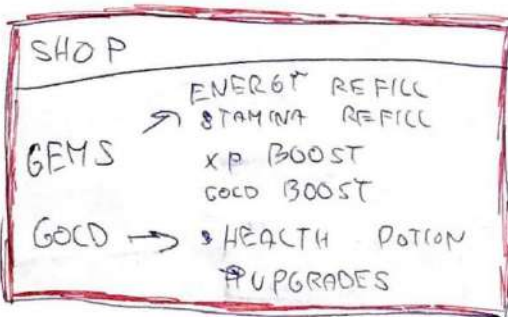 SHOP
ENERGY REFILL
STAMINA REFILL
GEMS
XP BOOST
GOLD BOOST
GOLD → HEALTH POTION
UPGRADES